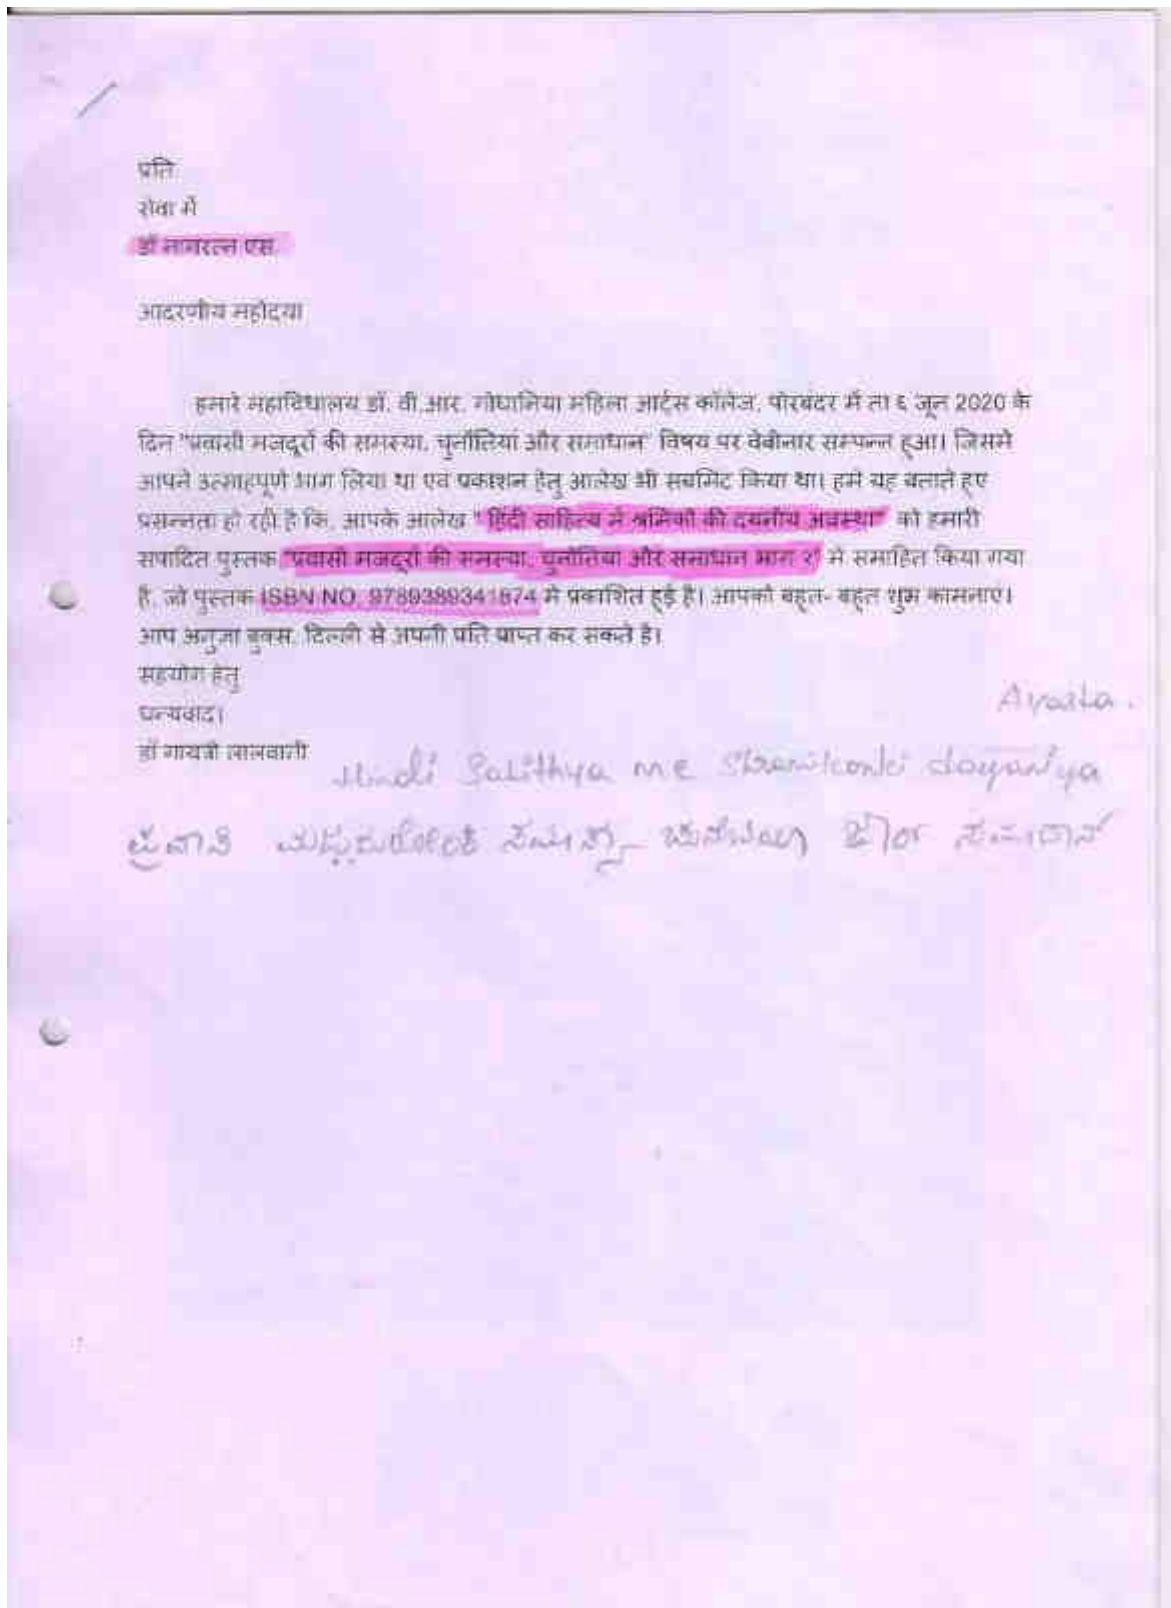 प्रति
सेवा में
डॉ नागरत्न एस.
आदरणीय महोदया
हमारे महाविधालय डॉ. वी.आर. गोधानिया महिला आर्ट्स कॉलेज, पोरबंदर में ता ६ जून 2020 के
दिन "प्रवासी मजदूरों की समस्या, चुनौतियां और समाधान" विषय पर वेबीनार सम्पन्न हुआ। जिसमे
आपने उत्साहपूर्ण भाग लिया था एवं प्रकाशन हेतु आलेख भी सबमिट किया था। हमे यह बताते हुए
प्रसन्नता हो रही है कि, आपके आलेख " हिंदी साहित्य में श्रमिकों की दयनीय अवस्था" को हमारी
संपादित पुस्तक "प्रवासी मजदूरों की समस्या, चुनौतिया और समाधान भाग २" मे समाहित किया गया
है, जो पुस्तक ISBN NO. 9789389341874 मे प्रकाशित हुई है। आपको बहुत- बहुत शुभ कामनाएं।
आप अनुजा बुक्स, दिल्ली से अपनी प्रति प्राप्त कर सकते है।
सहयोग हेतु
धन्यवाद।
डॉ गायत्री लालवानी
Avasta.
Hindi Sahithya me Shramikonki dayaniya
ಪ್ರವಾಸಿ ಸಮಸ್ಯಾ ಔರ ಸಮಾದಾನ್